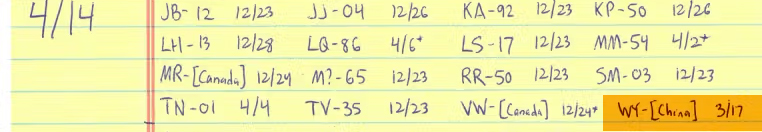 4/14
JB-12 12/23 JJ-04 12/26 KA-92 12/23 KP-50 12/26
LH-13 12/28 LQ-86 4/6* LS-17 12/23 MM-54 4/2*
MR-[Canada] 12/24 M?-65 12/23 RR-50 12/23 SM-03 12/23
TN-01 4/4 TV-35 12/23 VW-[Canada] 12/24* WY-[China] 3/17